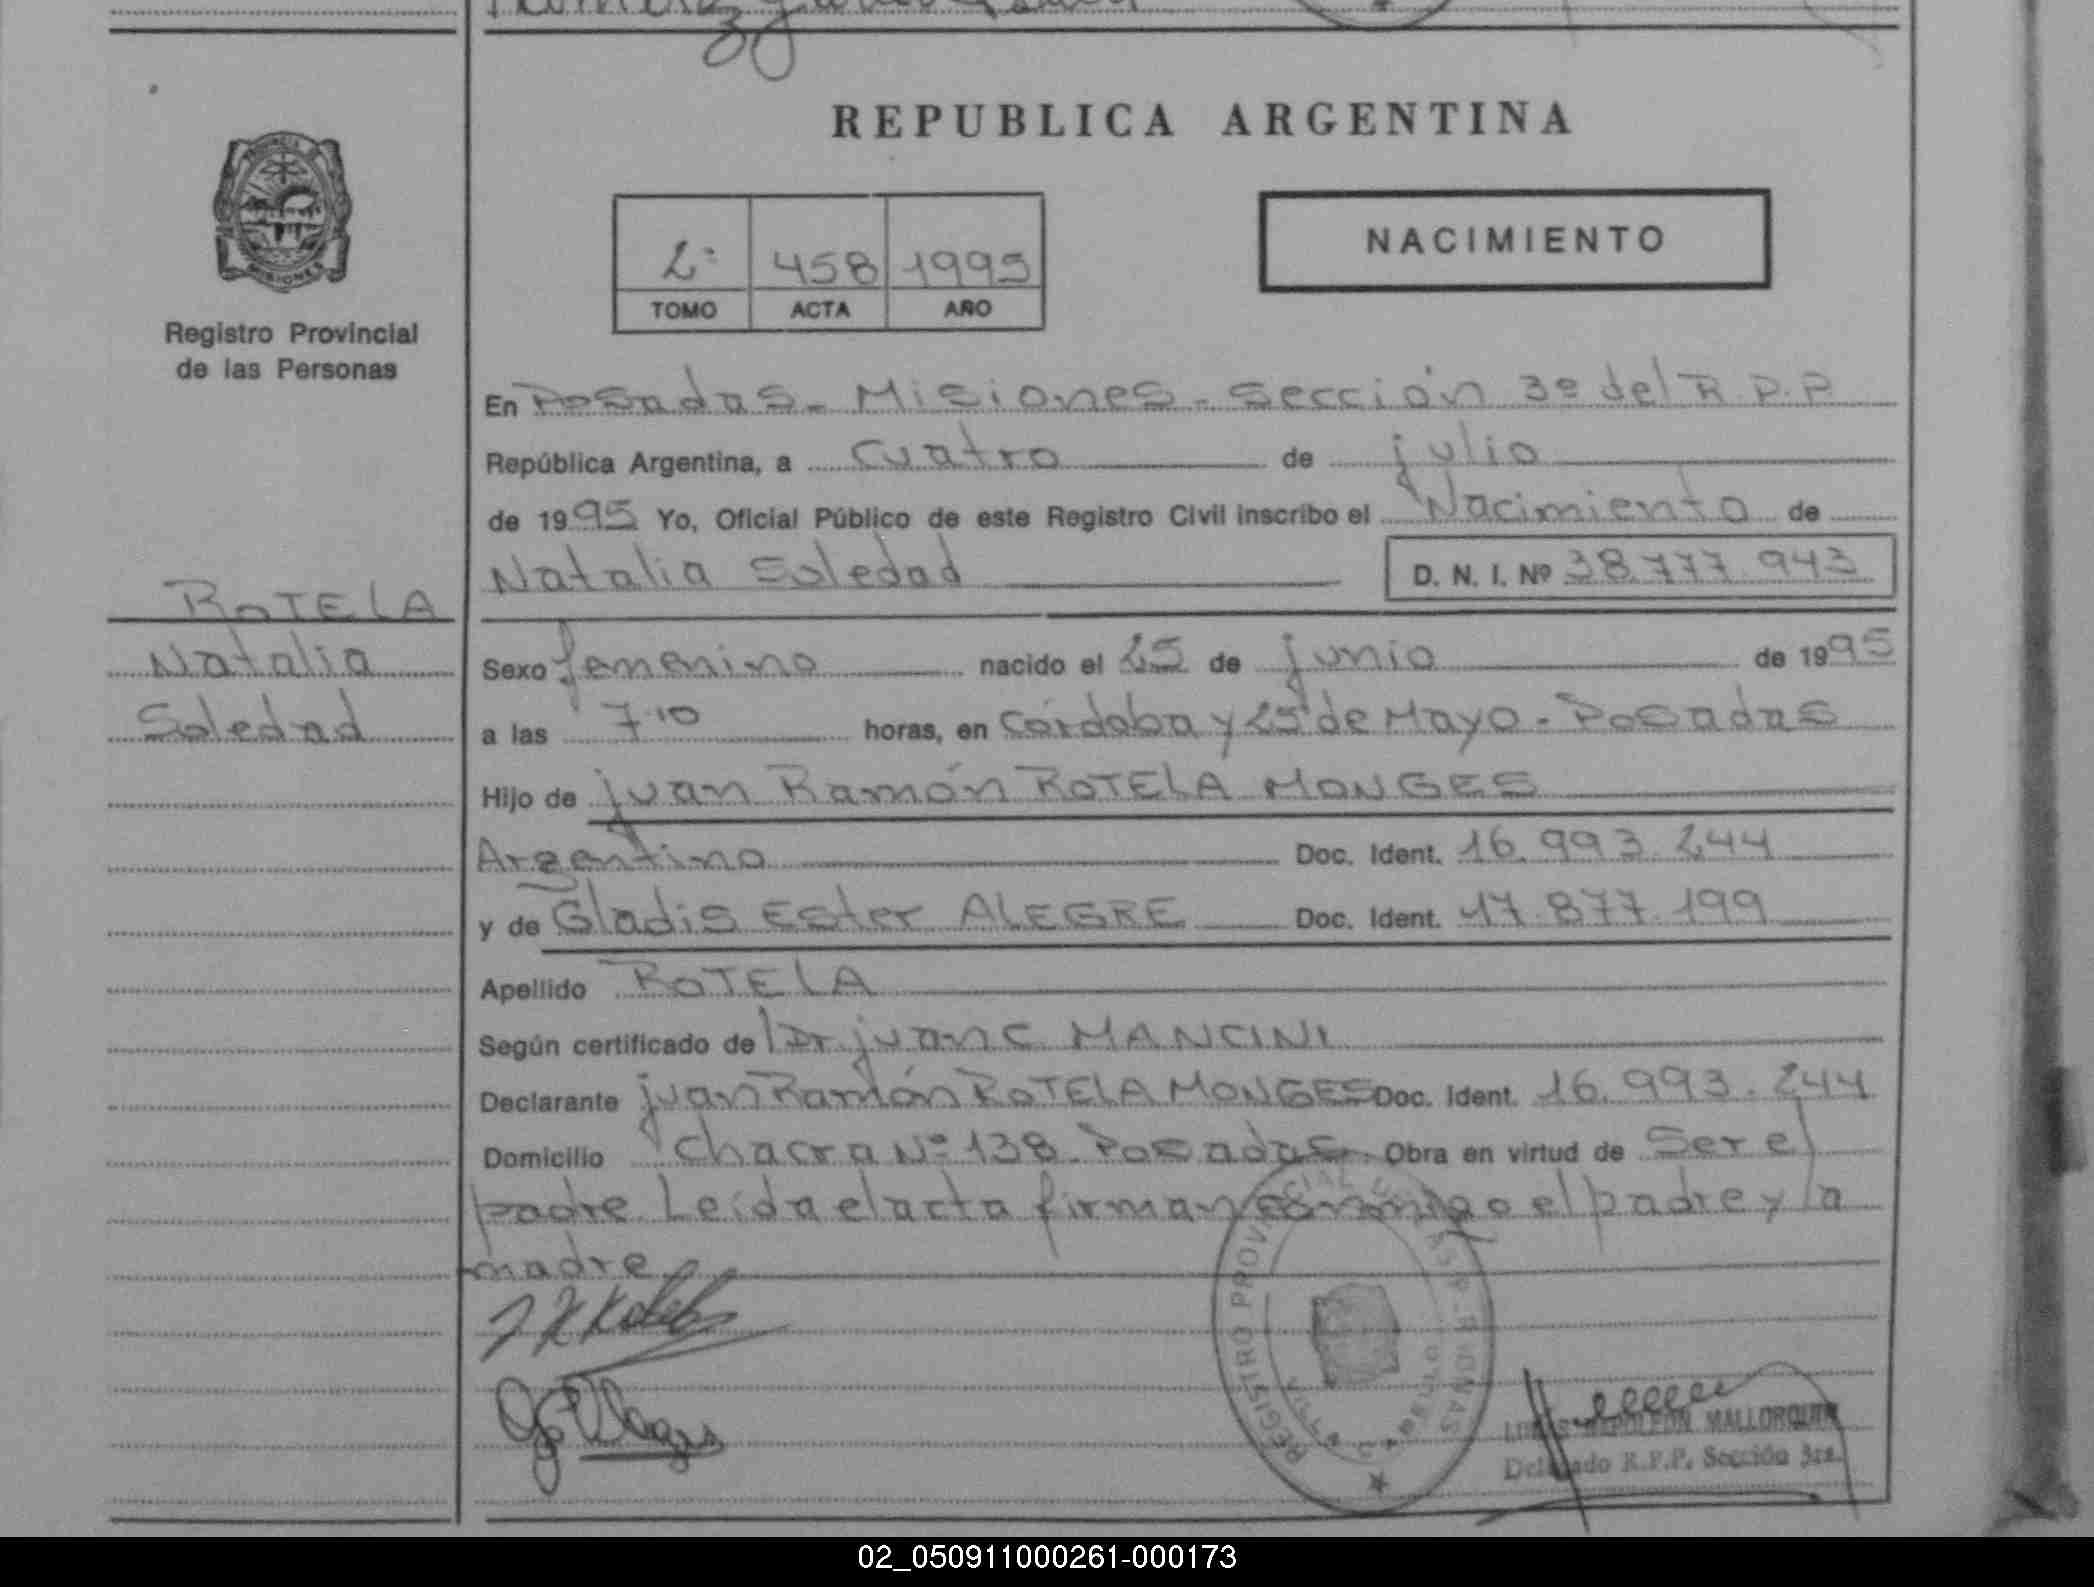 REPUBLICA ARGENTINA
PROVINCIA DE
MISIONES
Registro Provincial
de las Personas
2º 458 1995
TOMO ACTA AÑO
NACIMIENTO
En Posadas - Misiones - Sección 3º del R.P.P.
República Argentina, a cuatro de julio
de 1995 Yo, Oficial Público de este Registro Civil inscribo el Nacimiento de
Natalia Soledad D. N. I. Nº 38.777.943
ROTELA
Natalia
Soledad
Sexo femenino nacido el 25 de junio de 1995
a las 7.10 horas, en Córdoba y 25 de Mayo - Posadas
Hijo de Juan Ramón ROTELA MONGES
Argentino Doc. Ident. 16.993.244
y de Gladis Ester ALEGRE Doc. Ident. 17.877.199
Apellido ROTELA
Según certificado de l Dr. Juan C. MANCINI
Declarante Juan Ramón ROTELA MONGES Doc. Ident. 16.993.244
Domicilio Chacra Nº 138 - Posadas - Obra en virtud de Ser el
padre. Leída el acta firman conmigo el padre y la
madre
REGISTRO PROVINCIAL
NAPOLEON MALLORQUIN
Delegado R.P.P. Sección 3ra.
02_050911000261-000173